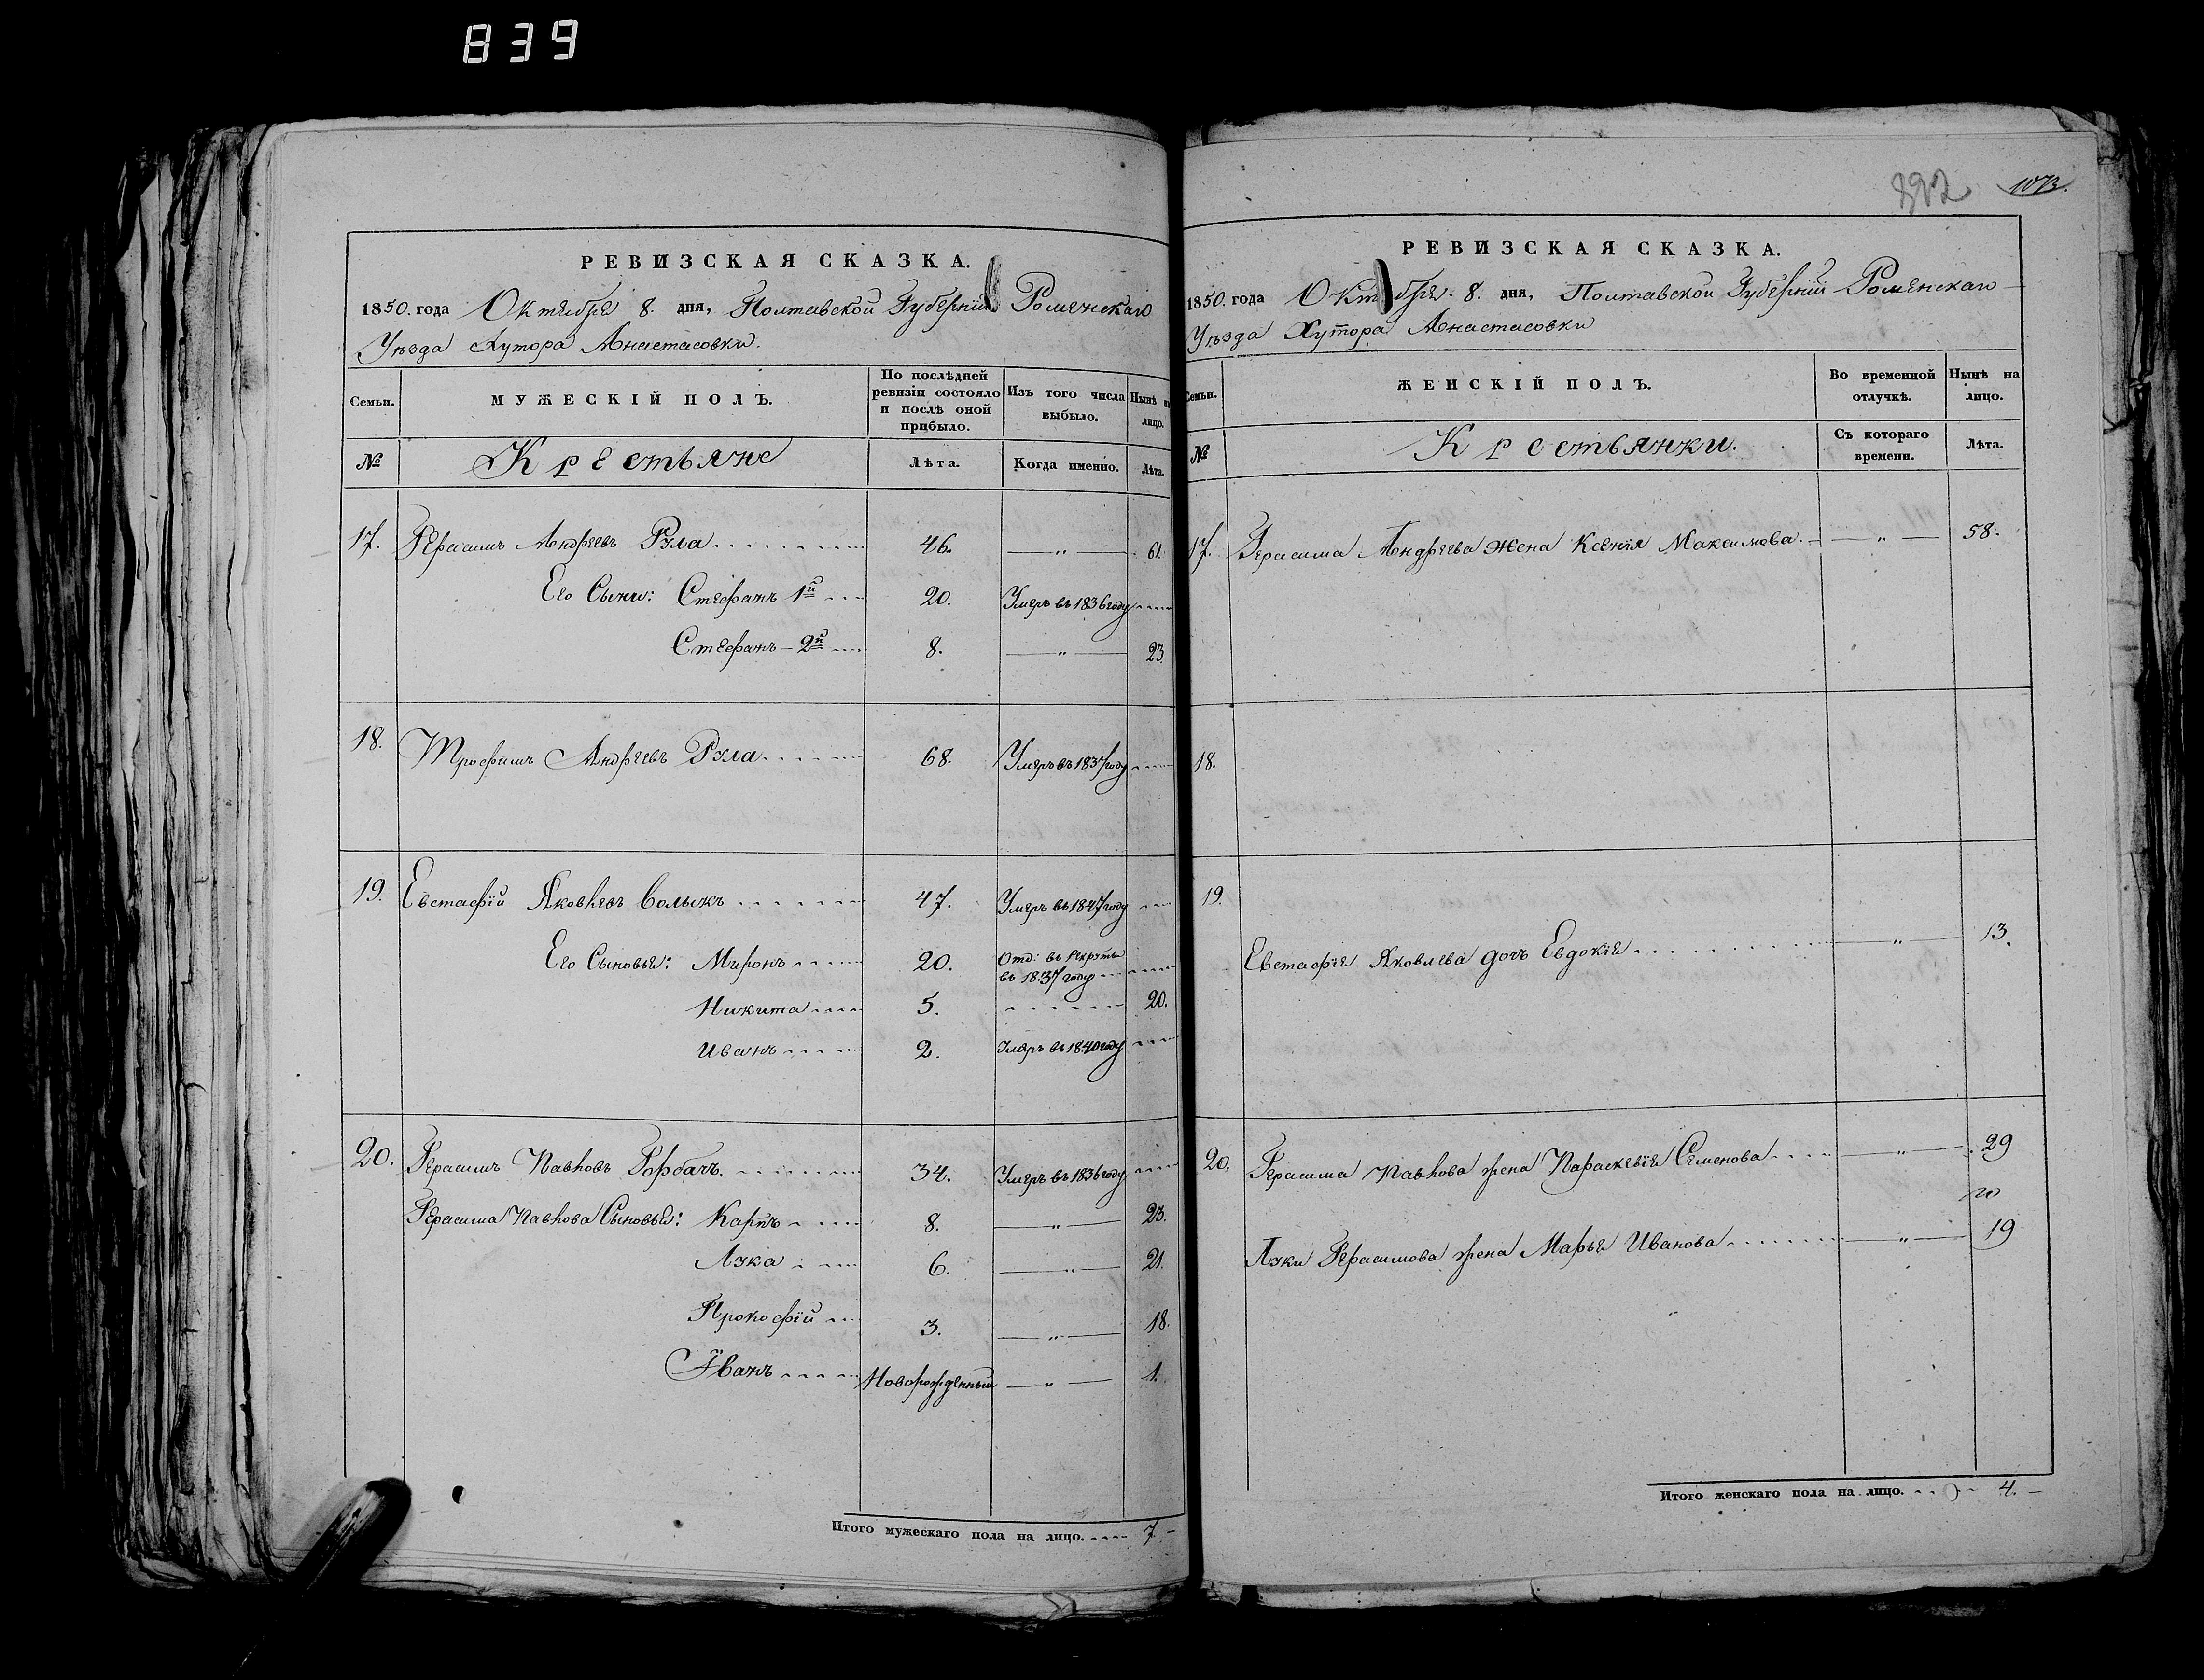 839
РЕВИЗСКАЯ СКАЗКА.
1850. года Октября 8. дня, Полтавской Губерніи Роменскаго
Уѣзда Хутора Анастасовки.
Семьи.
МУЖЕСКІЙ ПОЛЪ.
По послѣдней ревизіи состояло и послѣ оной прибыло.
Изъ того числа выбыло.
Нынѣ на лицо.
№
Крестьяне
Лѣта.
Когда именно.
Лѣта.
17. Герасимъ Андреевъ Рула 46. „ 61.
Его Сыны: Стефанъ 1й 20. Умеръ въ 1836 году
Стефанъ 2й 8. „ 23.
18. Трофимъ Андреевъ Рула 68. Умеръ въ 1837 году
19. Евстафій Яковлевъ Волыкъ 47. Умеръ въ 1847 году
Его Сыновья: Миронъ 20. Отд: въ Рекруты
въ 1837 году
Никита 5. 20.
Иванъ 2. Умеръ въ 1840 году
20. Герасимъ Павловъ Горбачъ. 34. Умеръ въ 1836 году
Герасима Павлова Сыновья: Карпъ 8. „ 23.
Лука 6. „ 21.
Прокофій 3. „ 18.
Іванъ Новорожденный „ 1.
Итого мужескаго пола на лицо. 7.
892 1073.
РЕВИЗСКАЯ СКАЗКА.
1850. года Октября 8. дня, Полтавской Губерніи Роменскаго
Уѣзда Хутора Анастасовки
Семьи.
ЖЕНСКІЙ ПОЛЪ.
Во временной отлучкѣ.
Нынѣ на лицо.
№
Крестьянки.
Съ котораго времени.
Лѣта.
17. Герасима Андреева жена Ксенія Максимова. „ 58.
18.
19.
Евстафія Яковлева дочь Евдокія „ 13.
20. Герасима Павлова жена Параскевія Семенова „ 29
Луки Герасимова жена Марья Иванова „ 19
Итого женскаго пола на лицо. 4.